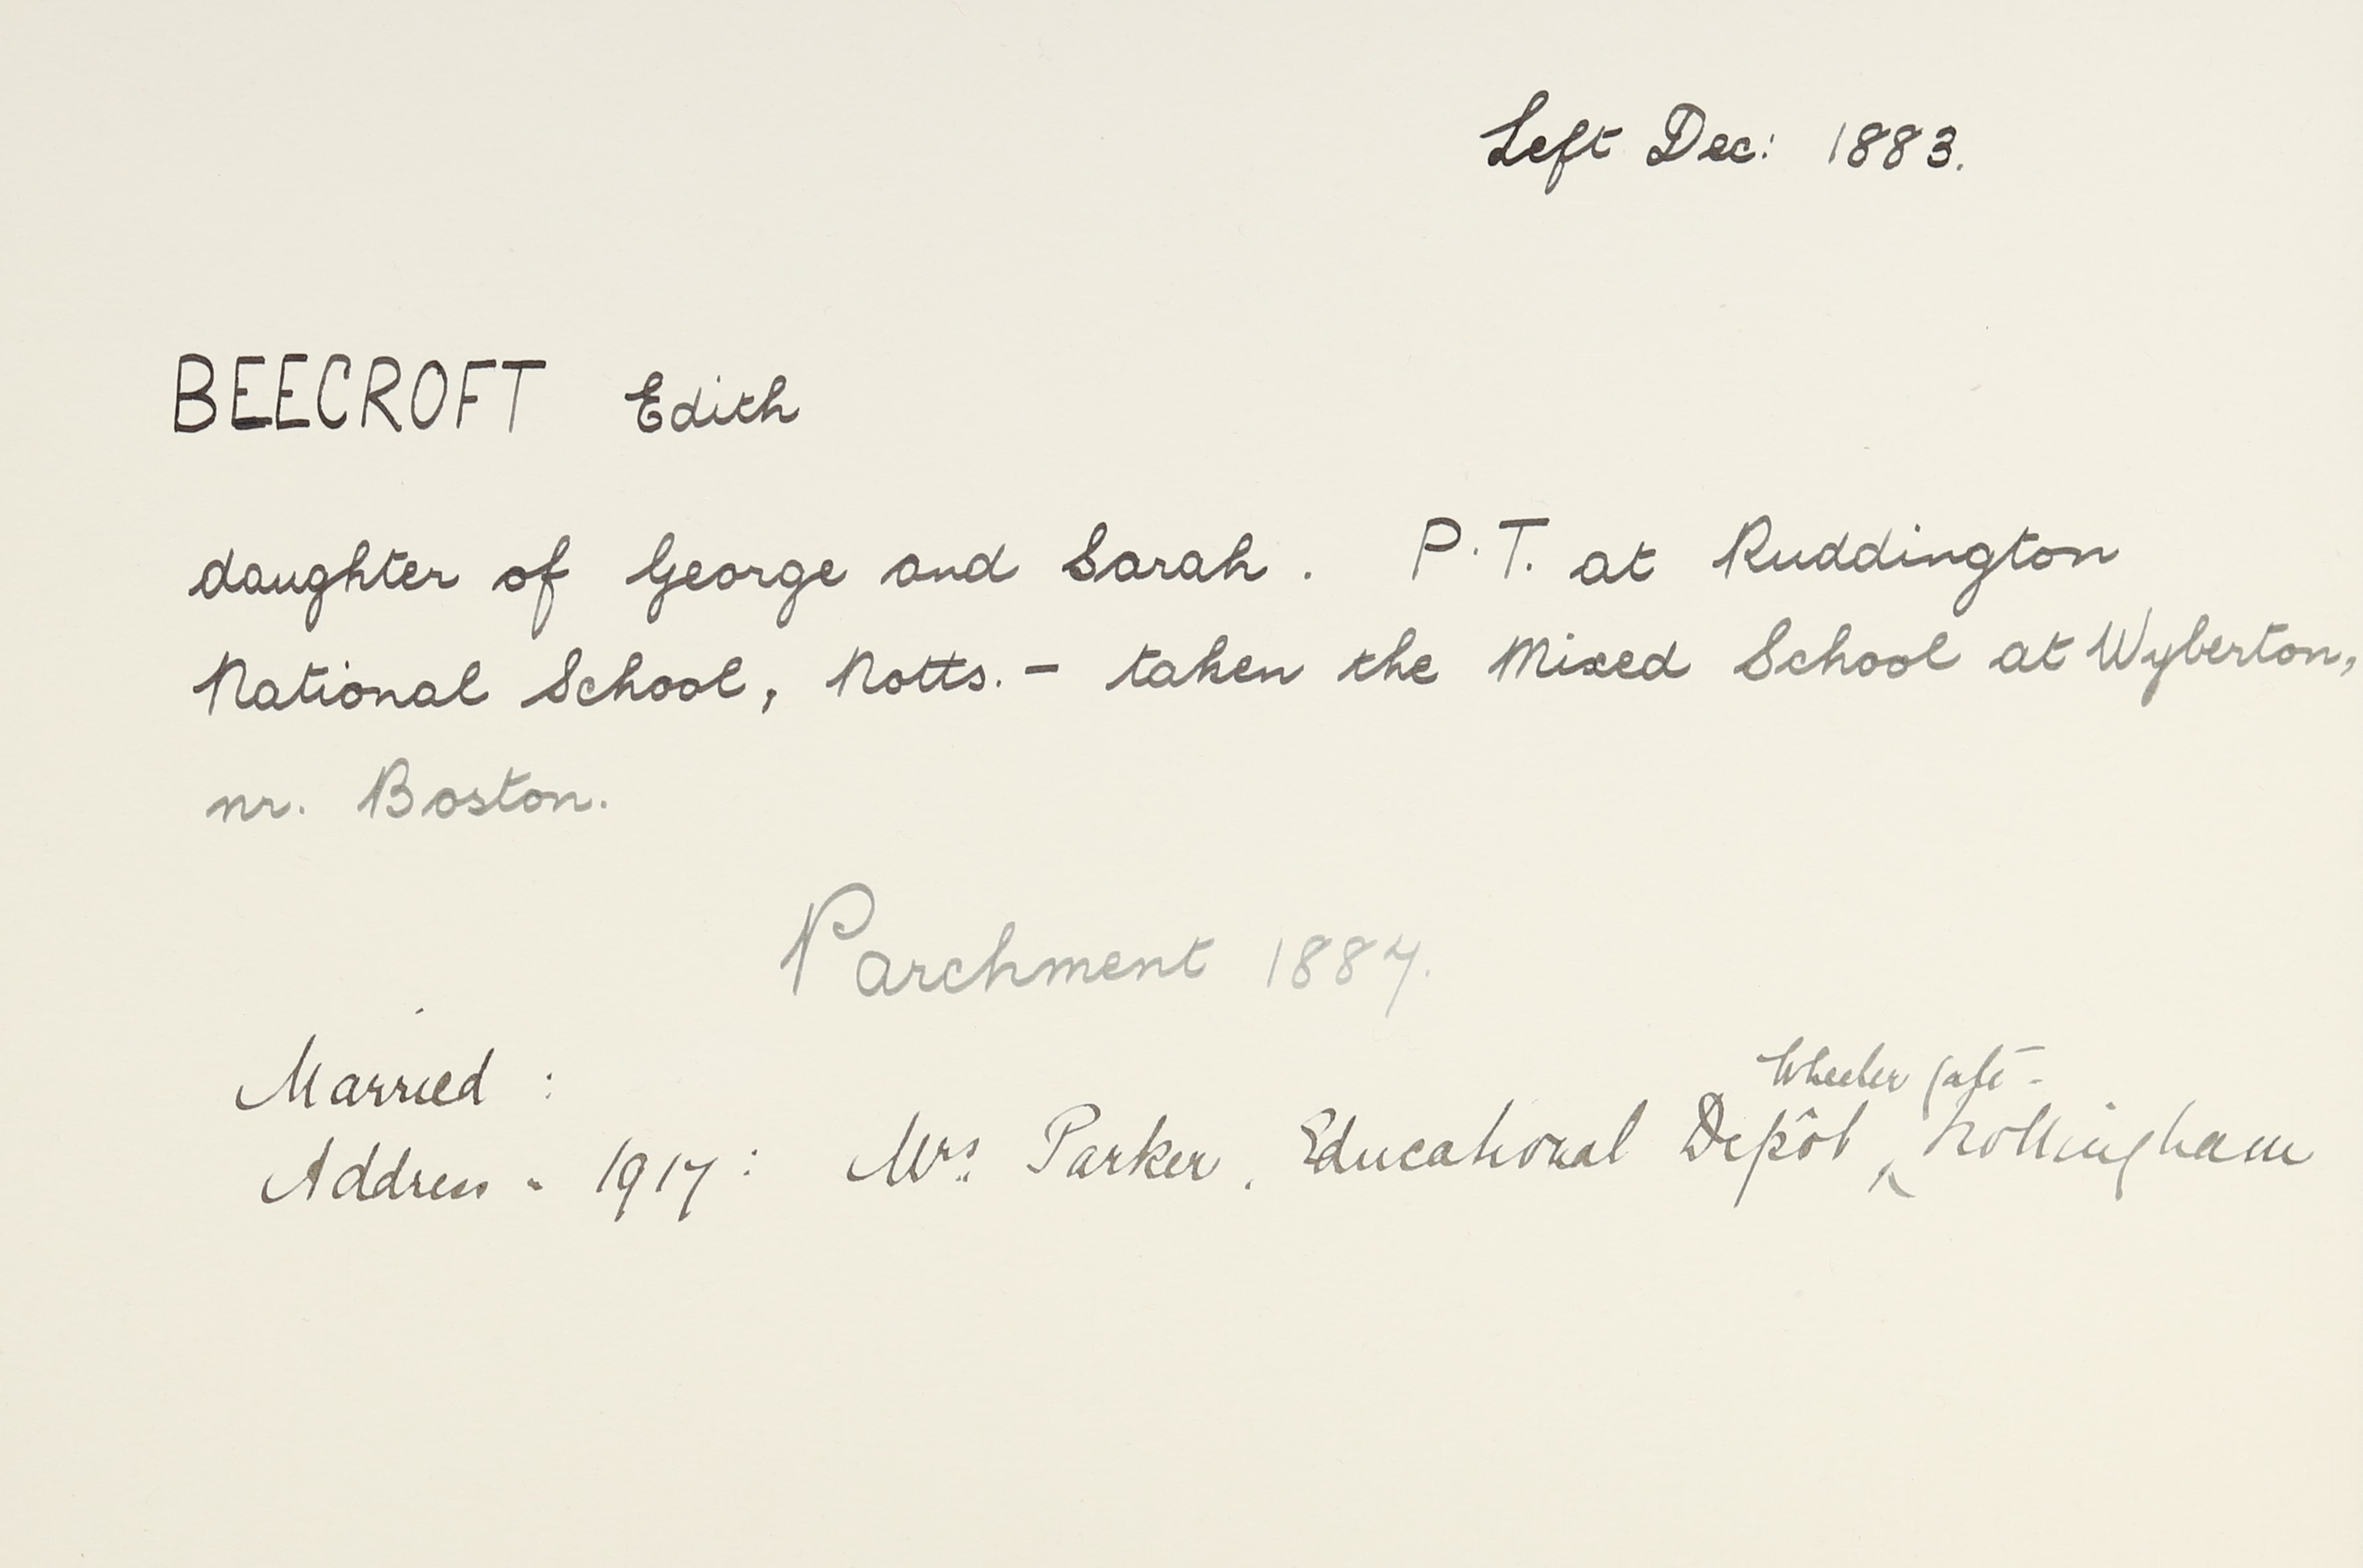 Left Dec: 1883.
BEECROFT Edith
daughter of George and Sarah. P.T. at Ruddington
National School, Notts. - taken the Mixed School at Wyberton,
nr. Boston.
Parchment 1887.
Married :
Wheeler Gate -
Address - 1917: Mrs. Parker, Educational Depôt, Nottingham